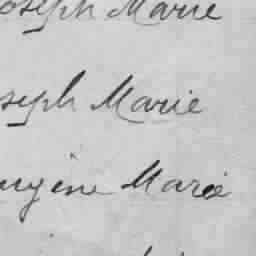 oseph Marie
seph Marie
ugène Marie